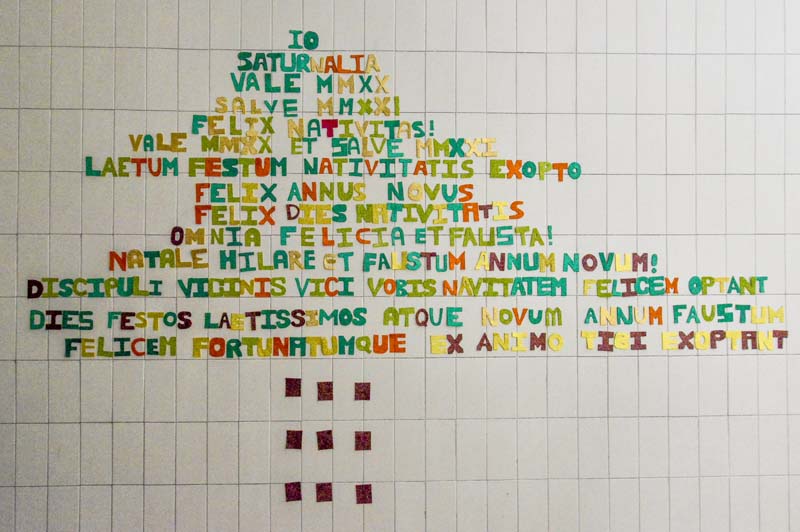 IO
SATURNALIA
VALE MMXX
SALVE MMXXI
FELIX NATIVITAS!
VALE MMXX ET SALVE MMXXI
LAETUM FESTUM NATIVITATIS EXOPTO
FELIX ANNUS NOVUS
FELIX DIES NATIVITATIS
OMNIA FELICIA ET FAUSTA!
NATALE HILARE ET FAUSTUM ANNUM NOVUM!
DISCIPULI VICINIS VICI VOBIS NAVITATEM FELICEM OPTANT
DIES FESTOS LAETISSIMOS ATQUE NOVUM ANNUM FAUSTUM
FELICEM FORTUNATUMQUE EX ANIMO TIBI EXOPTANT